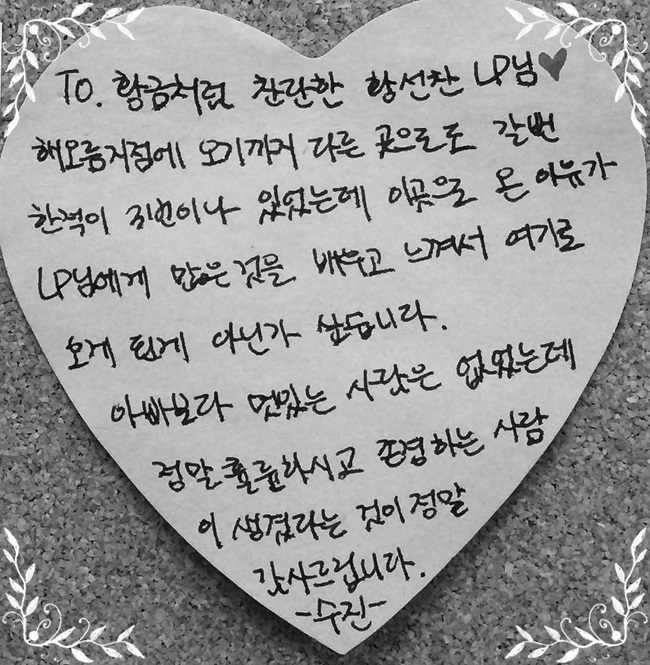 To. 황금처럼 찬란한 황선찬 LP님♥
해오름지점에 오기까지 다른 곳으로도 갈번
한적이 지번이나 있었는데 이곳으로 온 이유가
LP님에게 많은것을 배우고 느껴서 여기로
오게 된게 아닌가 싶습니다.
아빠보다 멋있는 사람은 없었는데
정말 훌륭하시고 존경하는 사람
이 생겼다는 것이 정말
감사드립니다.
-수진-